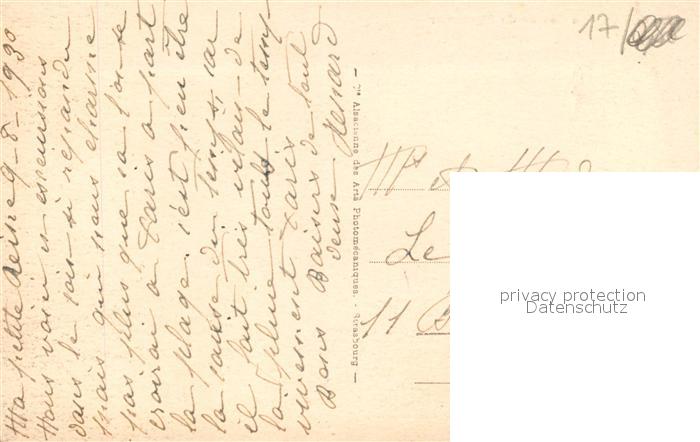 Ma petite Reine 9-8-1930
Nous voici en excursions
dans le pays si répandu
mais qui nous charme
pas plus que ça l'on se
croirai à Paris à part
la plage. c'est peut être
la cause du temps, car
il fait très vilain de
la pluie tout le temps
vivement Paris
Bons Baisers de tout
deux
17/
Cie Alsacienne des Arts Photomécaniques. - Strasbourg
Mr et
Le
11 B
privacy protection
Datenschutz